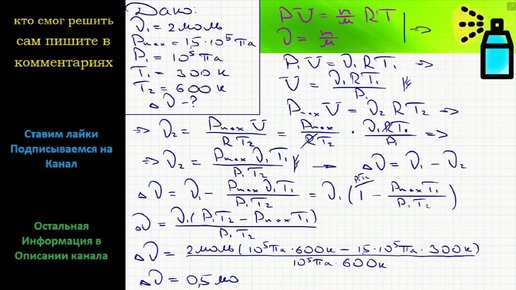 кто смог решить
сам пишите в
комментариях
Ставим лайки
Подписываемся на
Канал
Остальная
Информация в
Описании канала
Дано:
ν₁ = 2 моль
Pmax = 1,5·10⁵ Па
P₁ = 10⁵ Па
T₁ = 300 к
T₂ = 600 к
Δν - ?
PV = m/M RT
ν = m/M
P₁V = ν₁RT₁ =>
V = ν₁RT₁/P₁
PmaxV = ν₂RT₂ =>
=> ν₂ = PmaxV/RT₂ = Pmax/RT₂ · ν₁RT₁/P₁ =>
=> ν₂ = Pmaxν₁T₁/P₁T₂ → Δν = ν₁ - ν₂
Δν = ν₁ - Pmaxν₁T₁/P₁T₂ = ν₁(1 - PmaxT₁/P₁T₂)
Δν = ν₁(P₁T₂ - PmaxT₁)/P₁T₂
Δν = 2моль(10⁵Па·600к - 1,5·10⁵Па·300к)/10⁵Па·600к
Δν = 0,5 мо